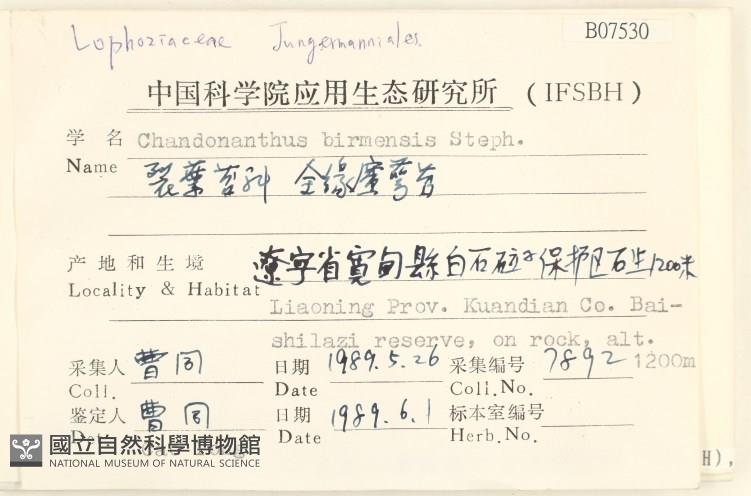 Lophoziaceae Jungermanniales.
B07530
中国科学院应用生态研究所 (IFSBH)
学名 Chandonanthus birmensis Steph.
Name 裂葉苔科 全缘广萼苔
产地和生境 遼宁省寛甸縣白石砬子保护区石生1200米
Locality & Habitat Liaoning Prov. Kuandian Co. Bai-
shilazi reserve, on rock, alt.
1200m
采集人 曹同 日期 1989.5.26 采集编号 7892
Coll. Date Coll.No.
鉴定人 曹同 日期 1989.6.1 标本室编号
Date Herb.No.
國立自然科學博物館
NATIONAL MUSEUM OF NATURAL SCIENCE
H),